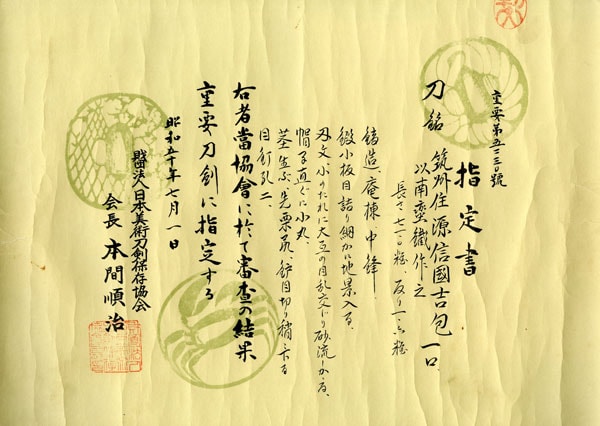 重要第五三三〇號
指定書
刀 銘 筑州住源信國吉包 一口
以南蛮鐵作之
長さ 七一・〇糎、反り 一・六糎
鎬造、庵棟、中鋒、
鍛小板目詰り細かに地景入る、
刃文小のたれに大互の目乱交じり砂流しかゝる、
帽子直ぐに小丸、
茎生ぶ、先栗尻、鑢目切り
目釘孔二、
右者當協會に於て審査の結果
重要刀剣に指定する
昭和五十年七月一日
財團法人日本美術刀剣保存協会
会長 本間順治